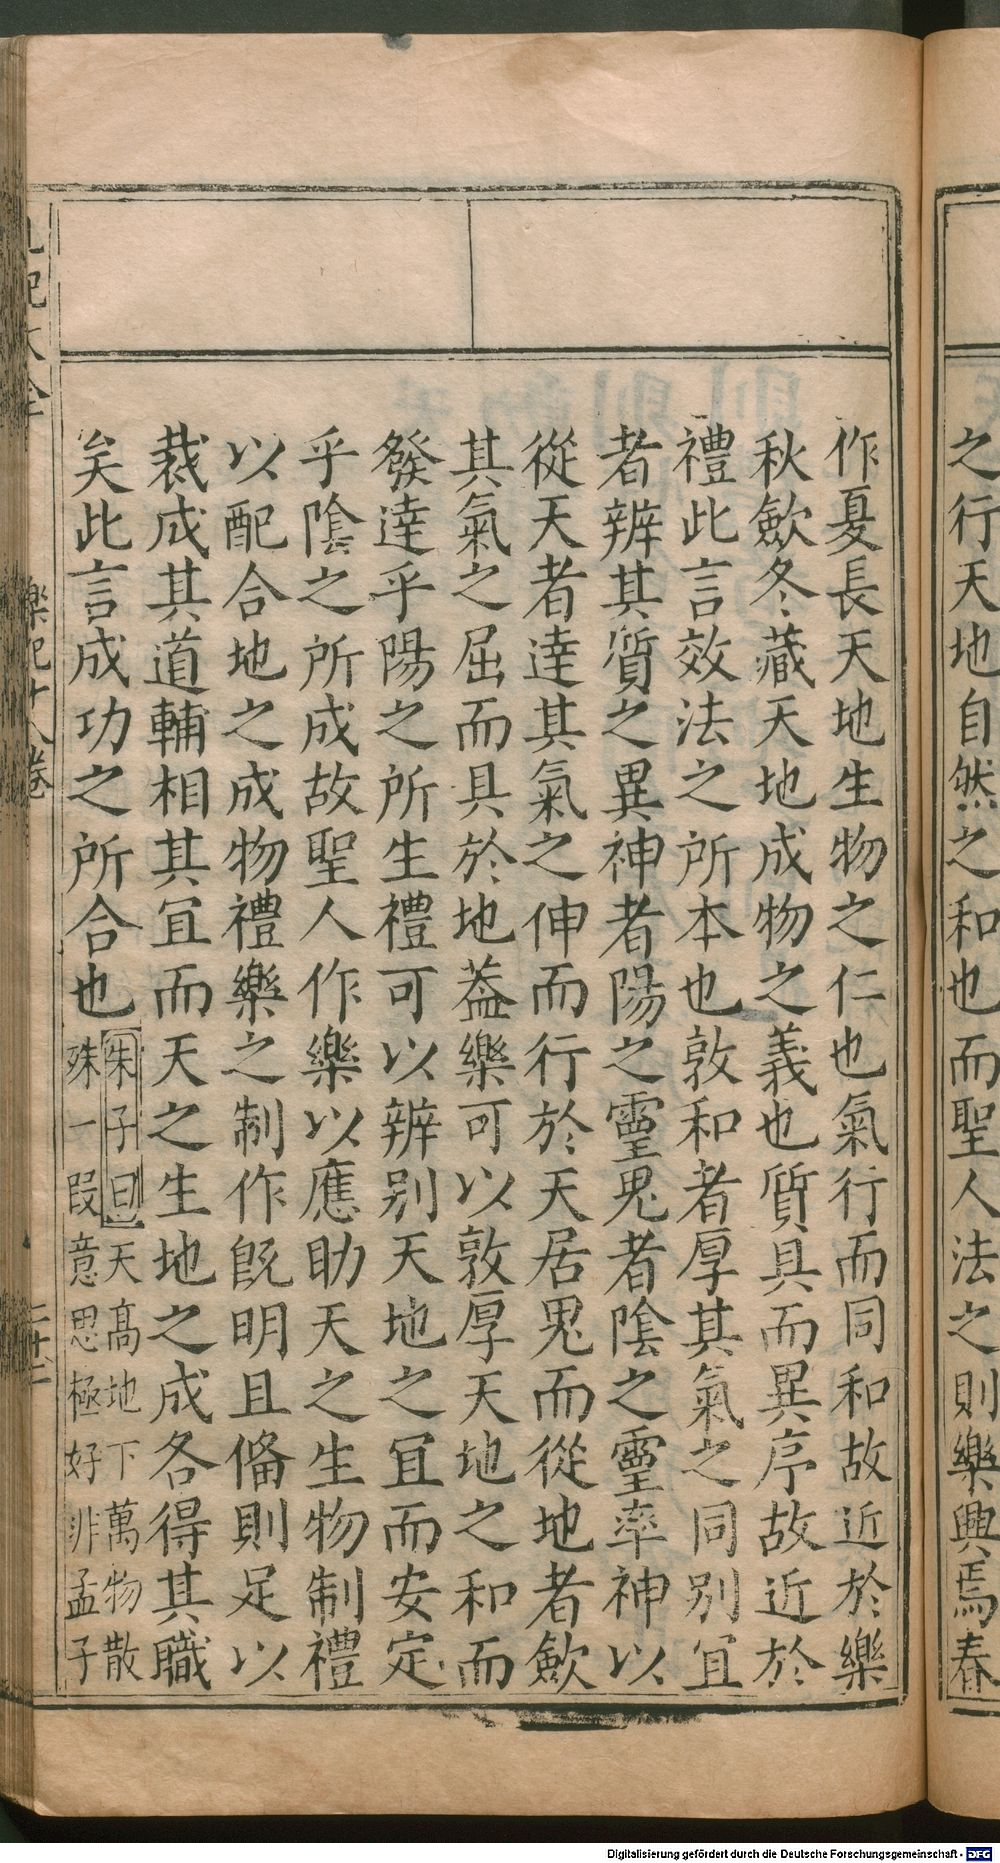 之行天地自然之和也而聖人法之則樂興焉春
作夏長天地生物之仁也氣行而同和故近於樂
秋歛冬藏天地成物之義也質具而異序故近於
禮此言效法之所本也敦和者厚其氣之同別宜
者辨其質之異神者陽之靈鬼者陰之靈率神以
從天者達其氣之伸而行於天居鬼而從地者歛
其氣之屈而具於地蓋樂可以敦厚天地之和而
發達乎陽之所生禮可以辨别天地之宜而安定
乎陰之所成故聖人作樂以應助天之生物制禮
以配合地之成物禮樂之制作既明且偹則足以
裁成其道輔相其宜而天之生地之成各得其職
矣此言成功之所合也
朱子曰天高地下萬物散
殊一段意思極好非孟子
記大全
樂記十八卷
Digitalisierung gefördert durch die Deutsche Forschungsgemeinschaft - DFG